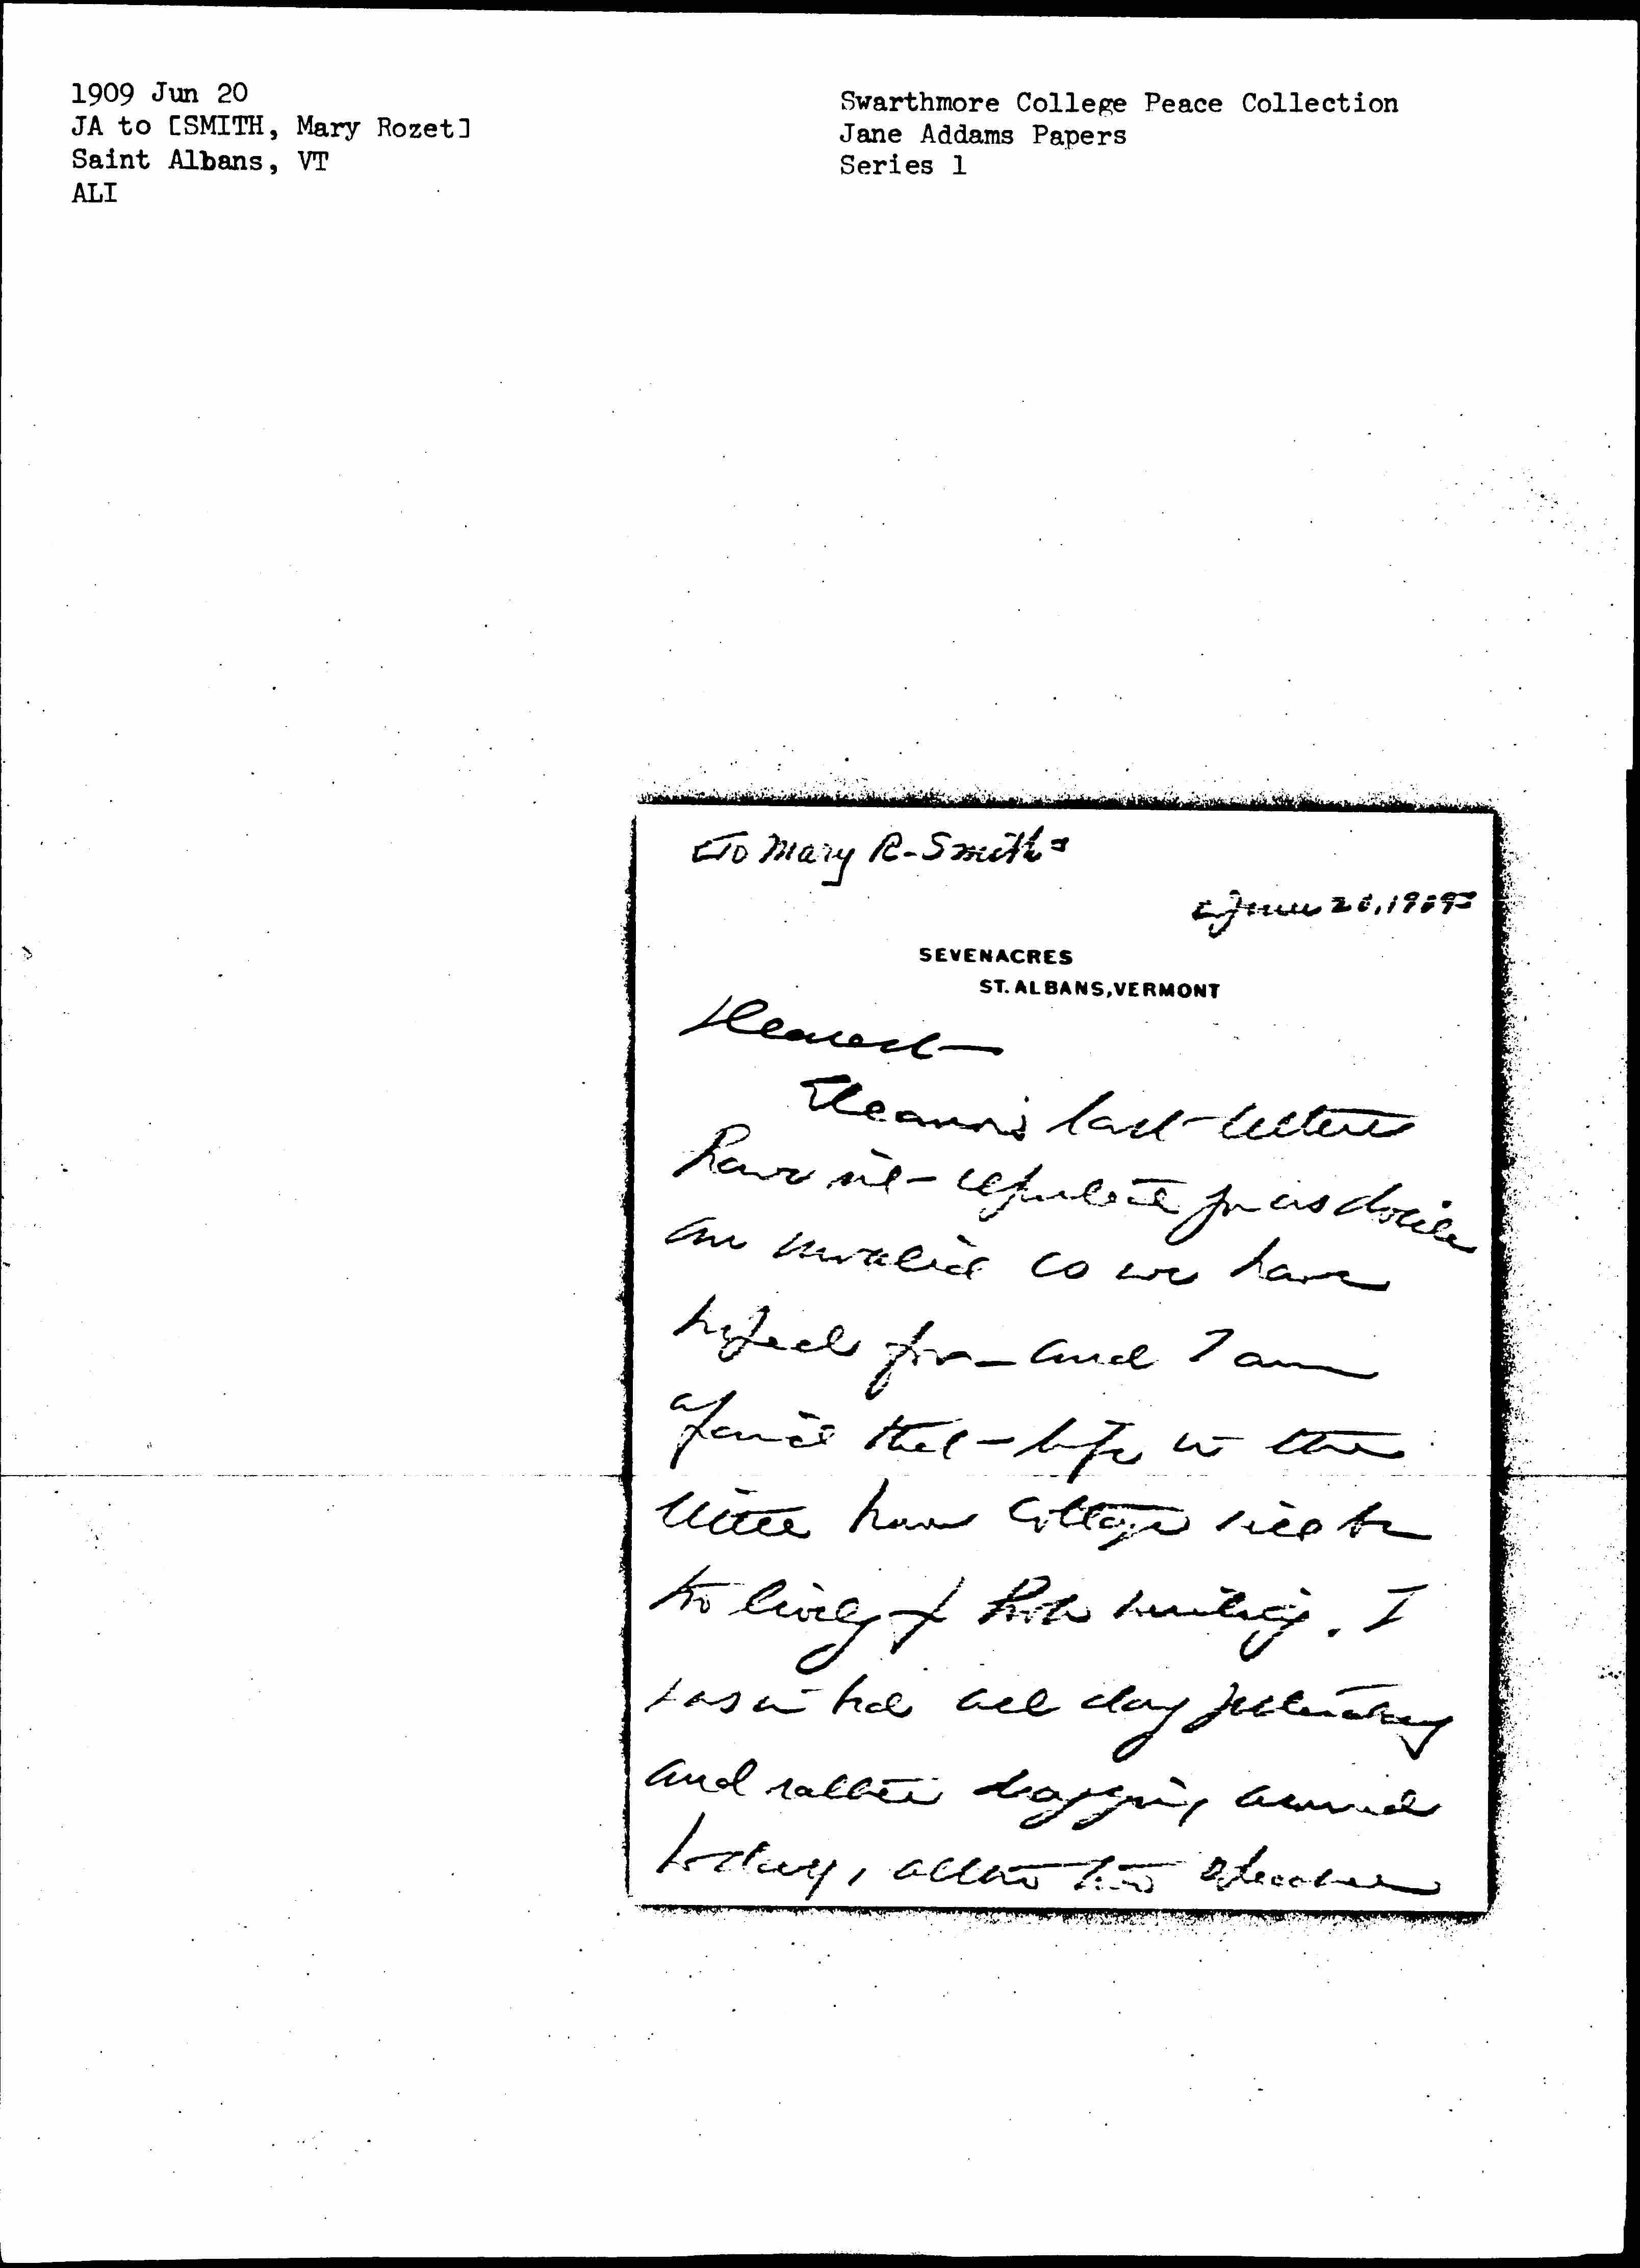 1909 Jun 20
JA to [SMITH, Mary Rozet]
Saint Albans, VT
ALI
Swarthmore College Peace Collection
Jane Addams Papers
Series 1
[To Mary R. Smith]
[June 20, 1909]
SEVENACRES
ST. ALBANS, VERMONT
Dearest
Eleanor's last letters
have not for as docile
an invalid as we have
hoped for — and I am
afraid that life in the
little house cottage will be
too lively for both. I
was in bed all day yesterday
and rather dragging around
today, altho two